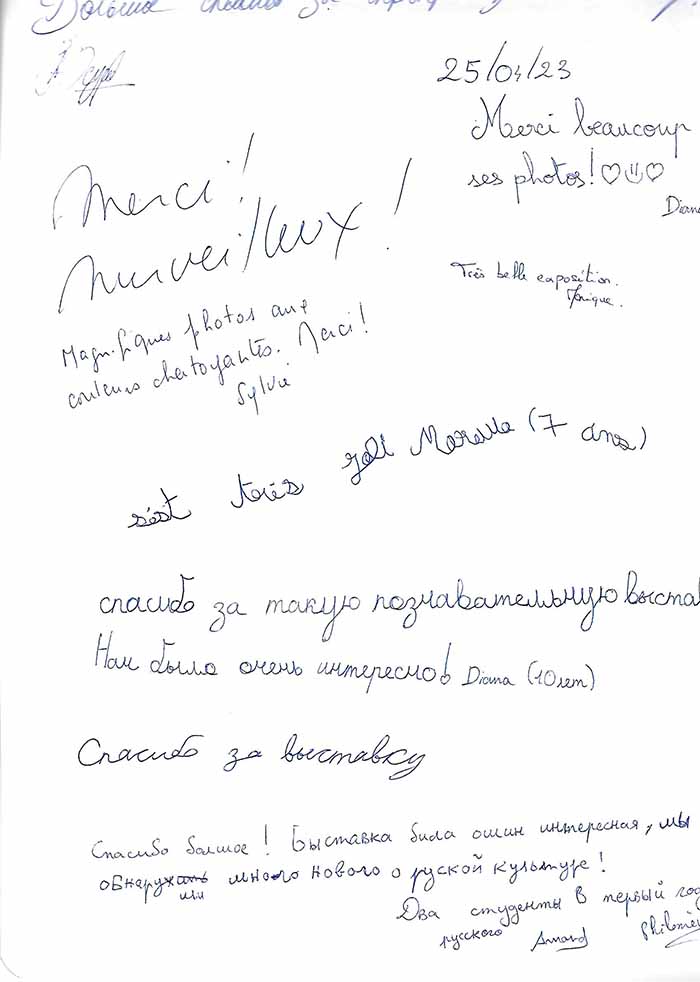 Большое спасибо за
25/04/23
Merci beaucoup
ses photos! ♡ ♡
Diana
Merci!
Merveilleux!
Très belle exposition.
Monique.
Magnifiques photos aux
couleurs chatoyantes. Merci!
Sylvie
sést trés joli Marella (7 ans)
спасибо за такую познавательную выста
Нам было очень интересно! Diana (10 лет)
Спасибо за выставку
Спасибо балшое! Выставка била ошин интересная, мы
обнаружили много нового о руской культуре!
Два студенты в первый год
русского Armand Philomèn